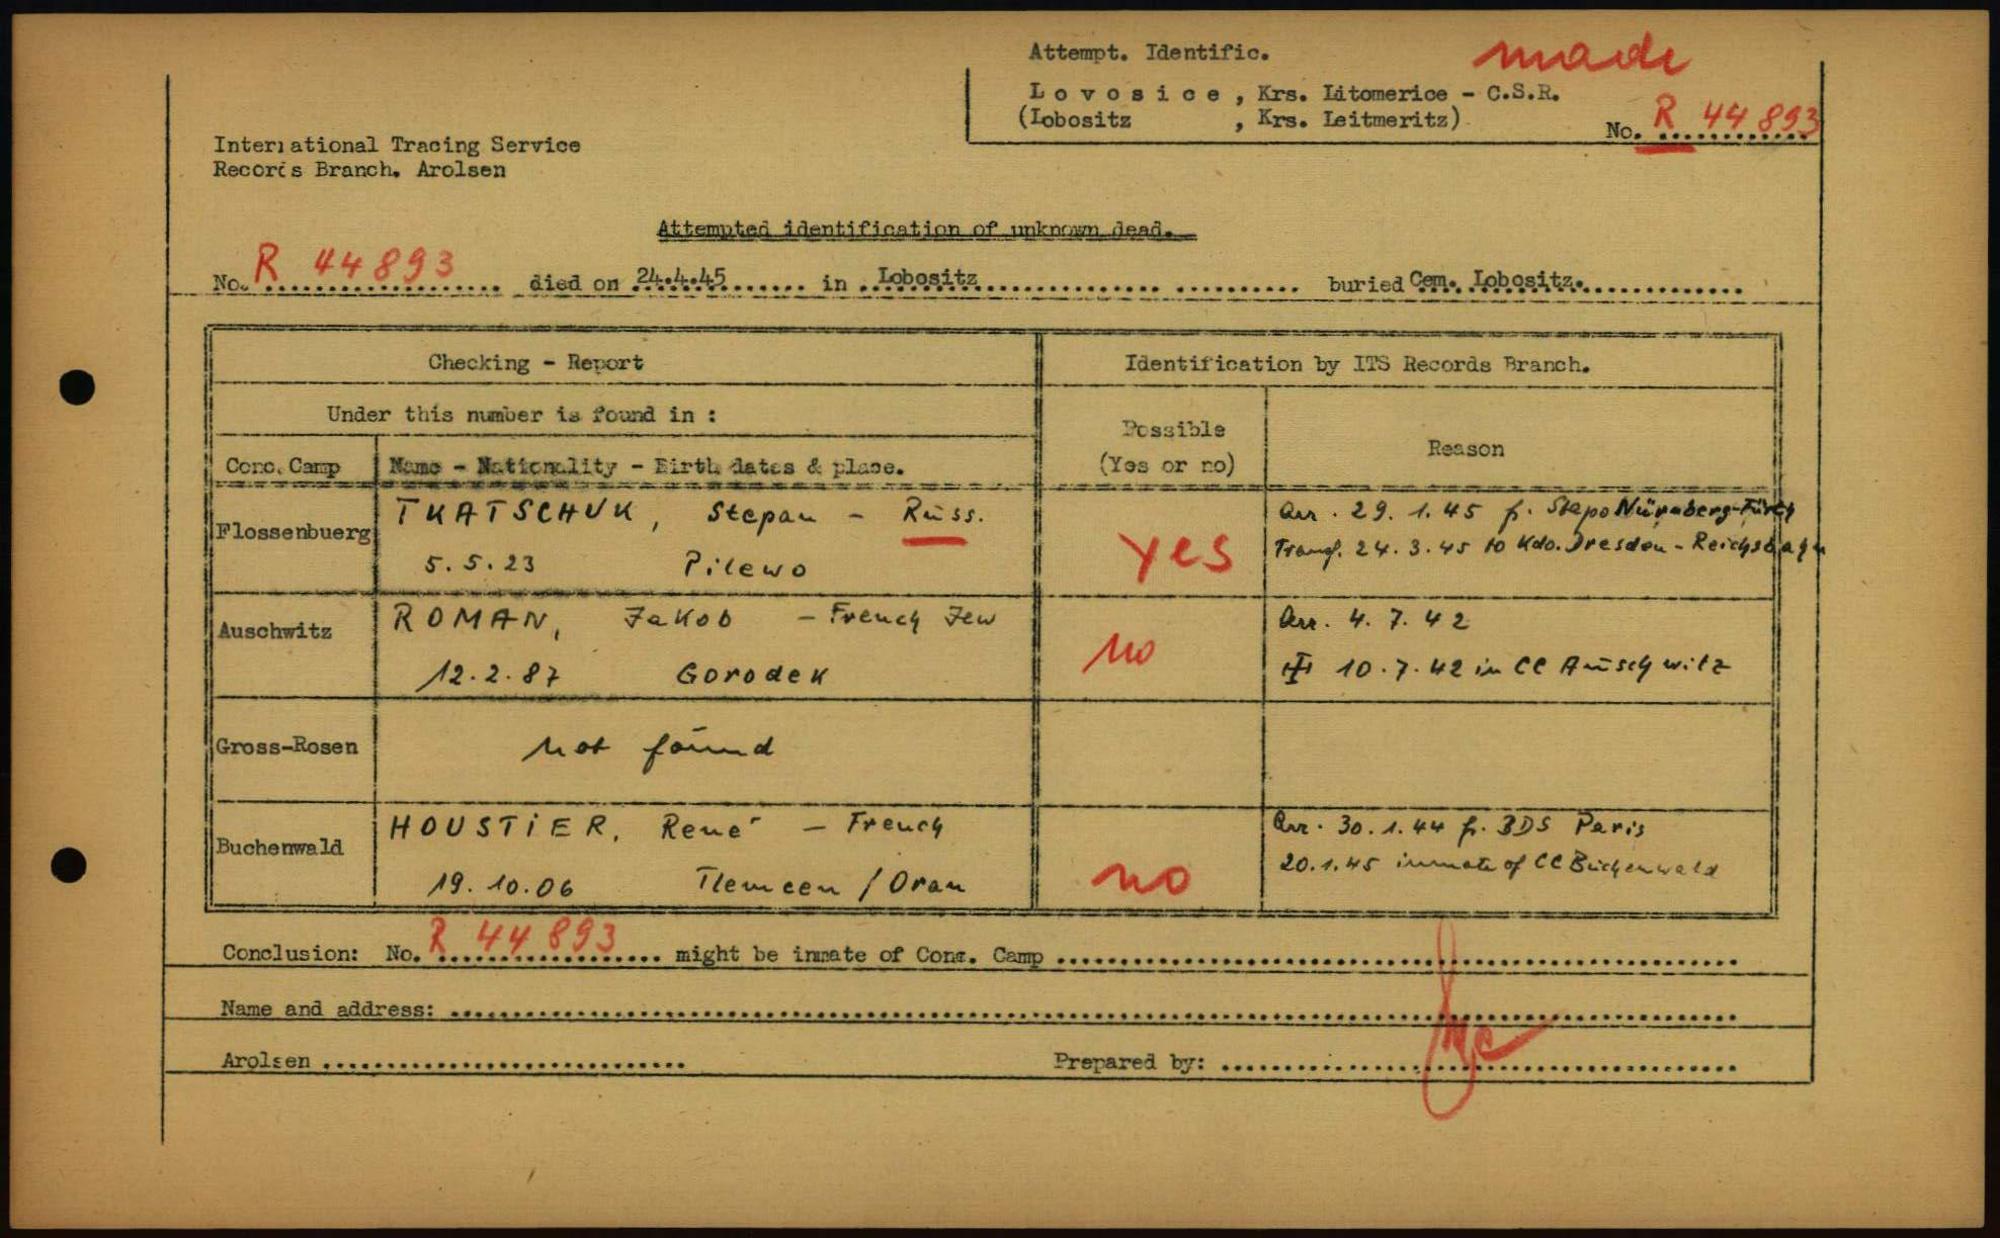 Attempt. Identific. made
Lovosice, Krs. Litomerice - C.S.R.
(Lobositz , Krs. Leitmeritz)
No. R 44 893
International Tracing Service
Records Branch. Arolsen
Attempted identification of unknown dead.
No. R 44 893 died on 24.4.45 in Lobositz buried Cem. Lobositz.
Checking - Report
Identification by ITS Records Branch.
Under this number is found in :
Possible
(Yes or no)
Reason
Conc. Camp
Name - Nationality - Birth dates & place.
Flossenbuerg
TKATSCHUK, Stepan - Russ.
5.5.23 Pilewo
yes
Arr. 29.1.45 fr. Stapo Nürnberg-Fürth
Transf. 24.3.45 to Kdo. Dresden - Reichsbahn
Auschwitz
ROMAN, Jakob - French Jew
12.2.87 Gorodek
no
Arr. 4.7.42
10.7.42 in CC Auschwitz
Gross-Rosen
not found
Buchenwald
HOUSTIER, René - French
19.10.06 Tlemcen / Oran
no
Arr. 30.1.44 fr. BDS Paris
20.1.45 inmate of CC Buchenwald
Conclusion: No. R 44 893 might be inmate of Conc. Camp
Name and address:
Arolsen
Prepared by: